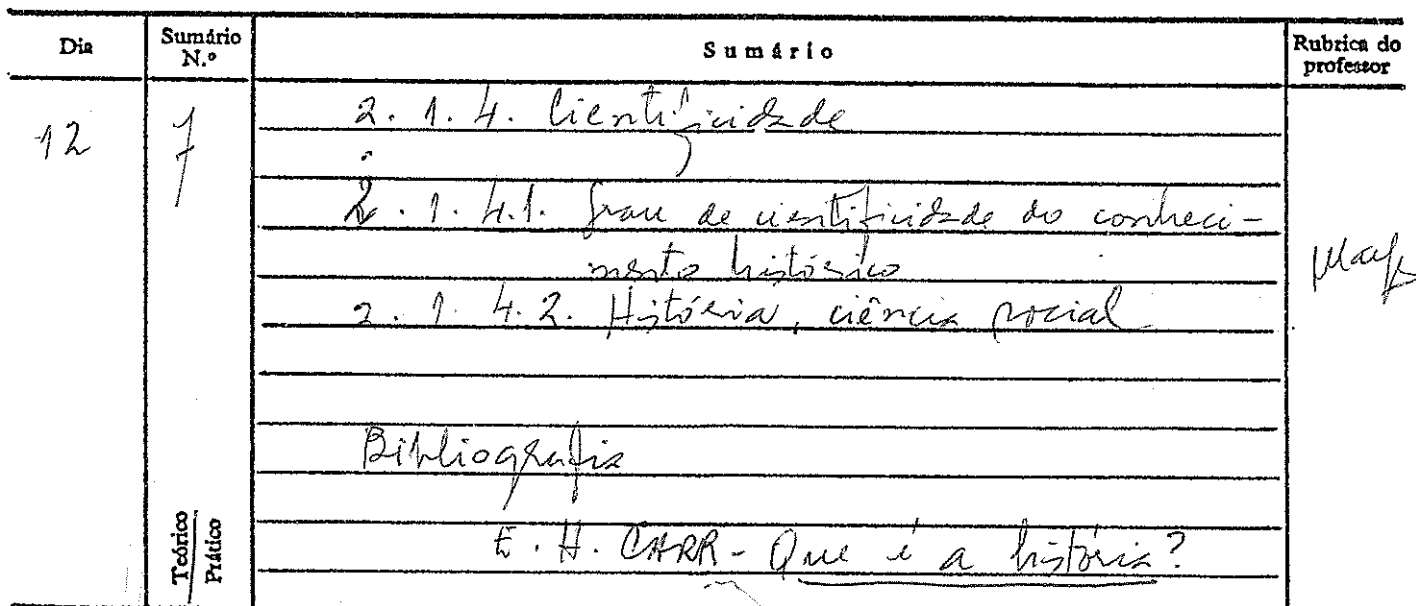 Dia Sumário N.º Sumário Rubrica do professor
12 7 2. 1. 4. Cientificidade
2. 1. 4.1. Grau de cientificidade do conheci-
mento histórico
2. 1. 4. 2. História, ciência social
Bibliografia
Teórico
Prático
E. H. CARR - Que é a história?